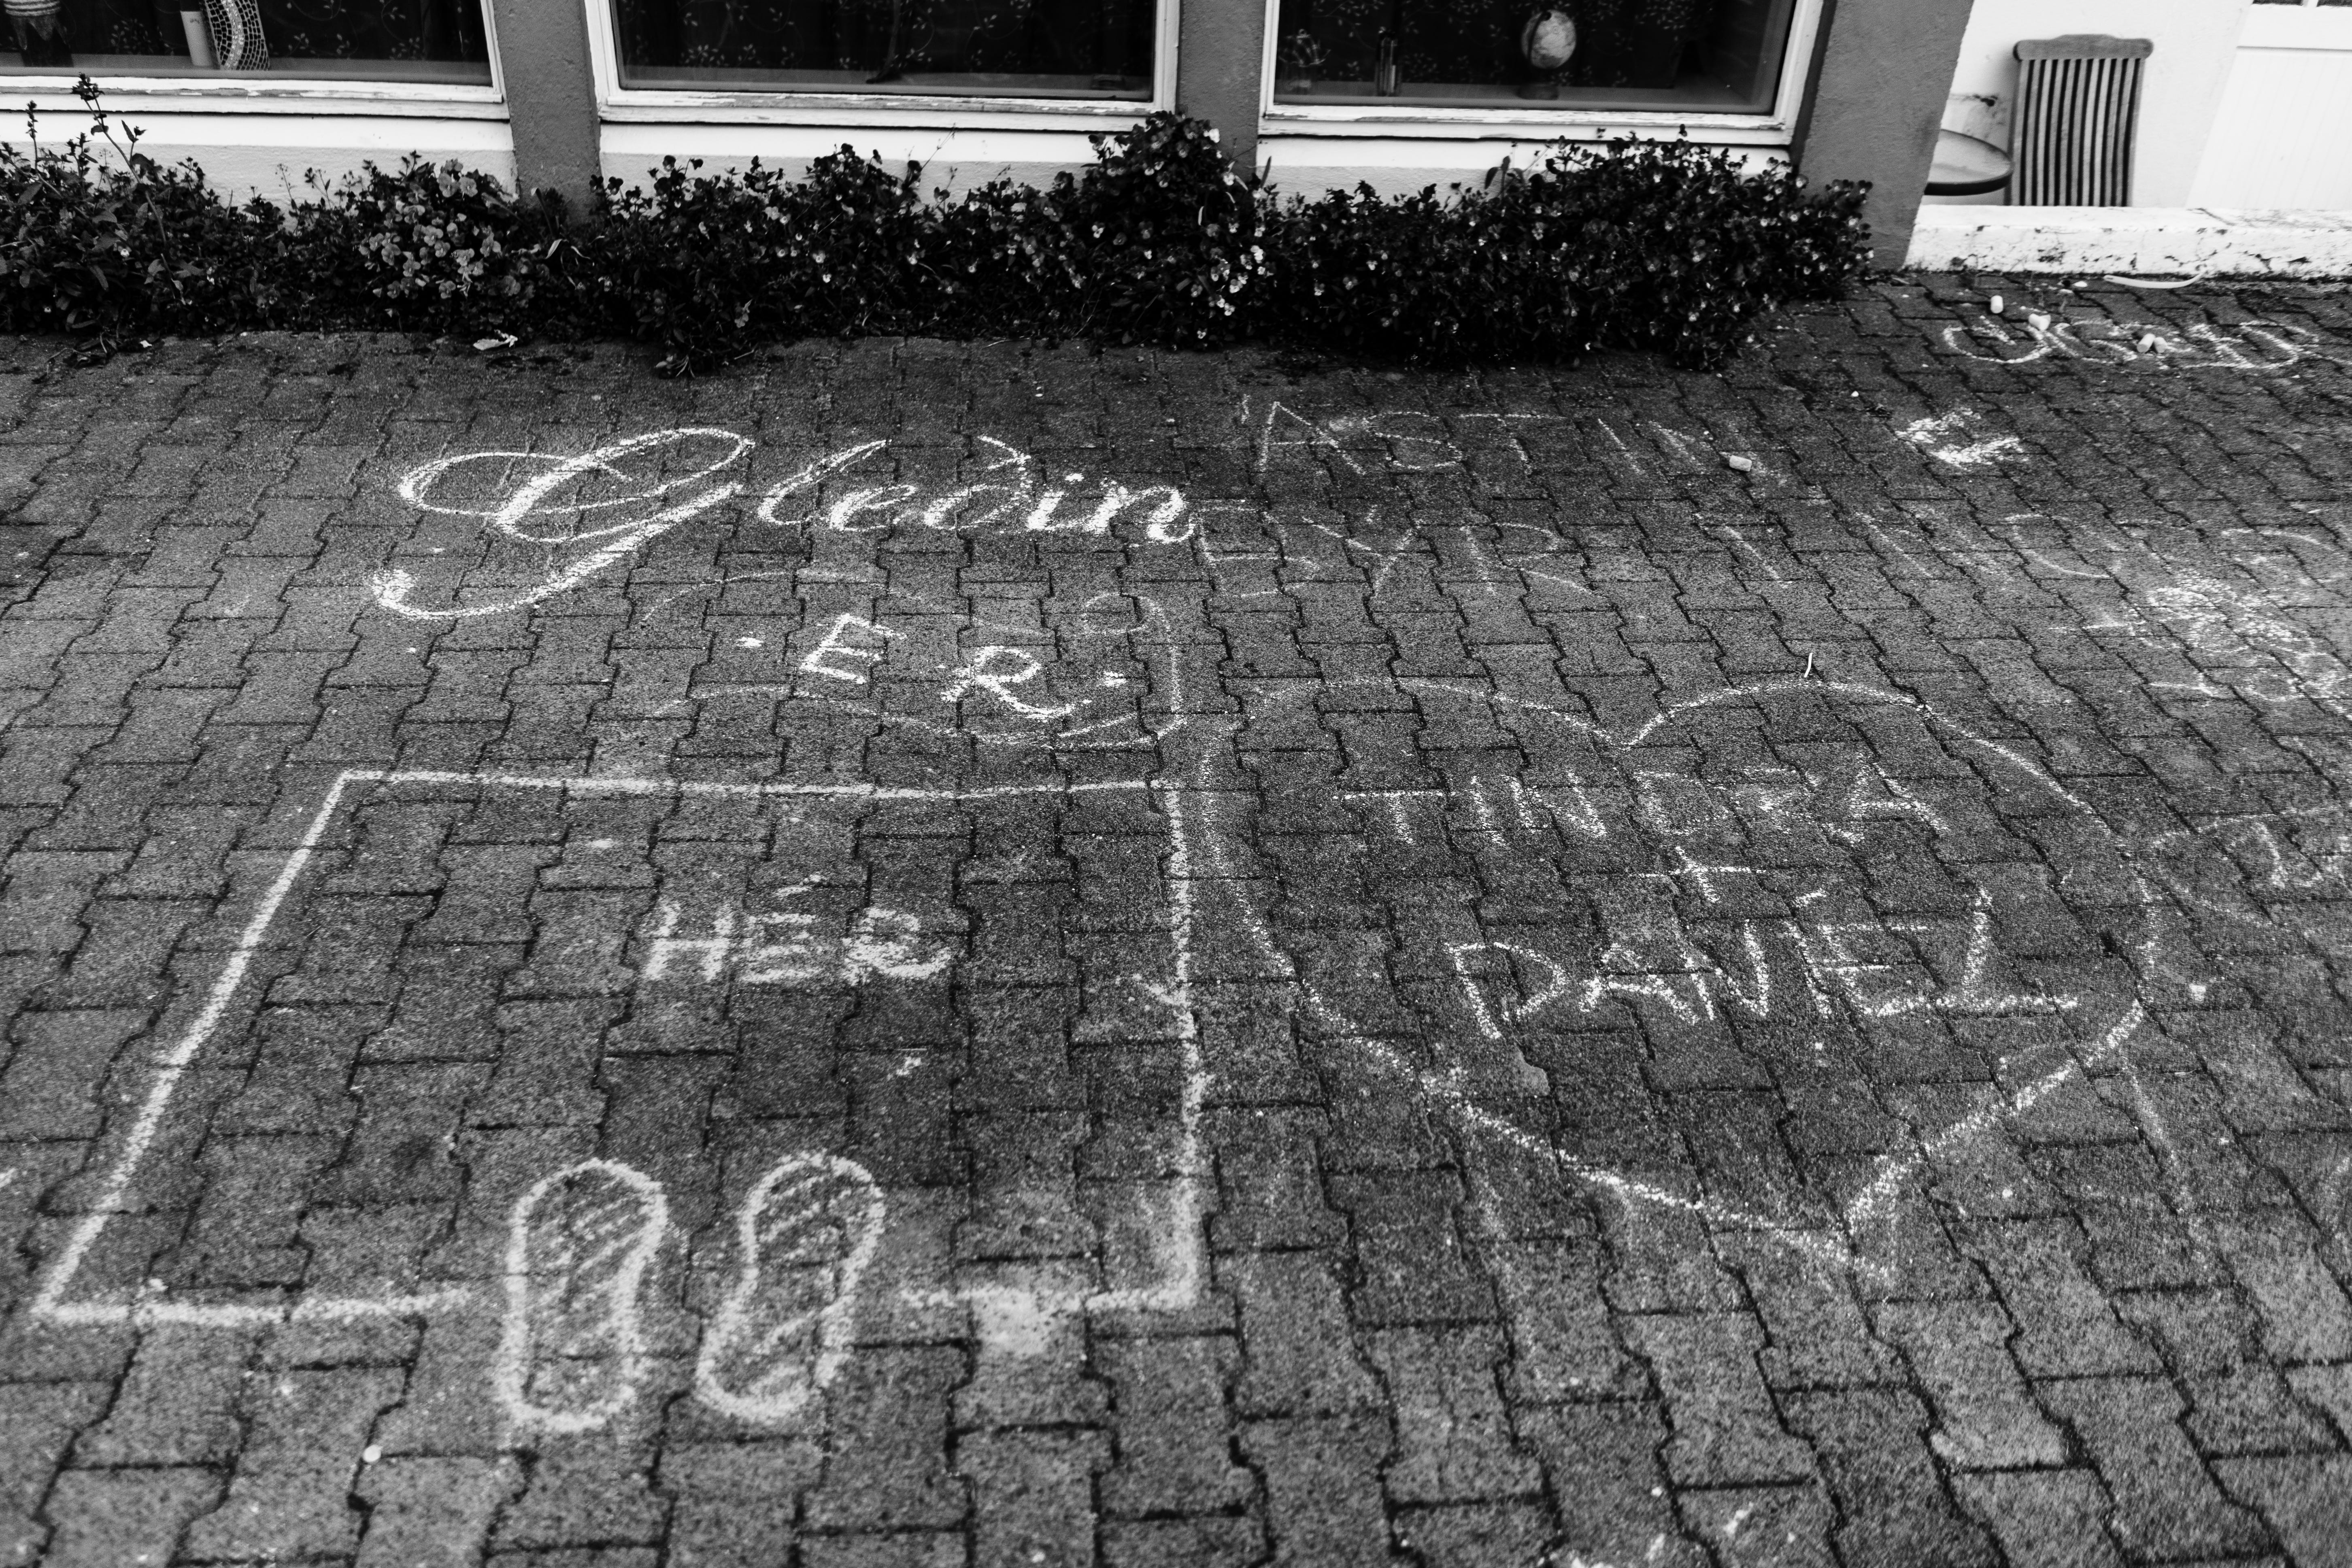 Gleðin
· E R ·
HÉR
ÁSTIN
BYR Í
TINDRA
+
DANÍEL